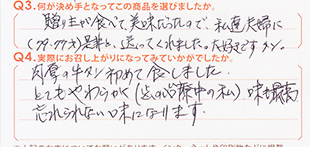 Q3.何が決め手となってこの商品を選びましたか。
贈り主が食べて美味だったので、私達夫婦に
(79.77才)是非と、送ってくれました。大好きです タン。
Q4.実際にお召し上がりになってみていかがでしたか。
肉厚の牛タン初めて食しました。
とてもやわらかく(歯の治療中の私)味も最高
忘れられない味になります。